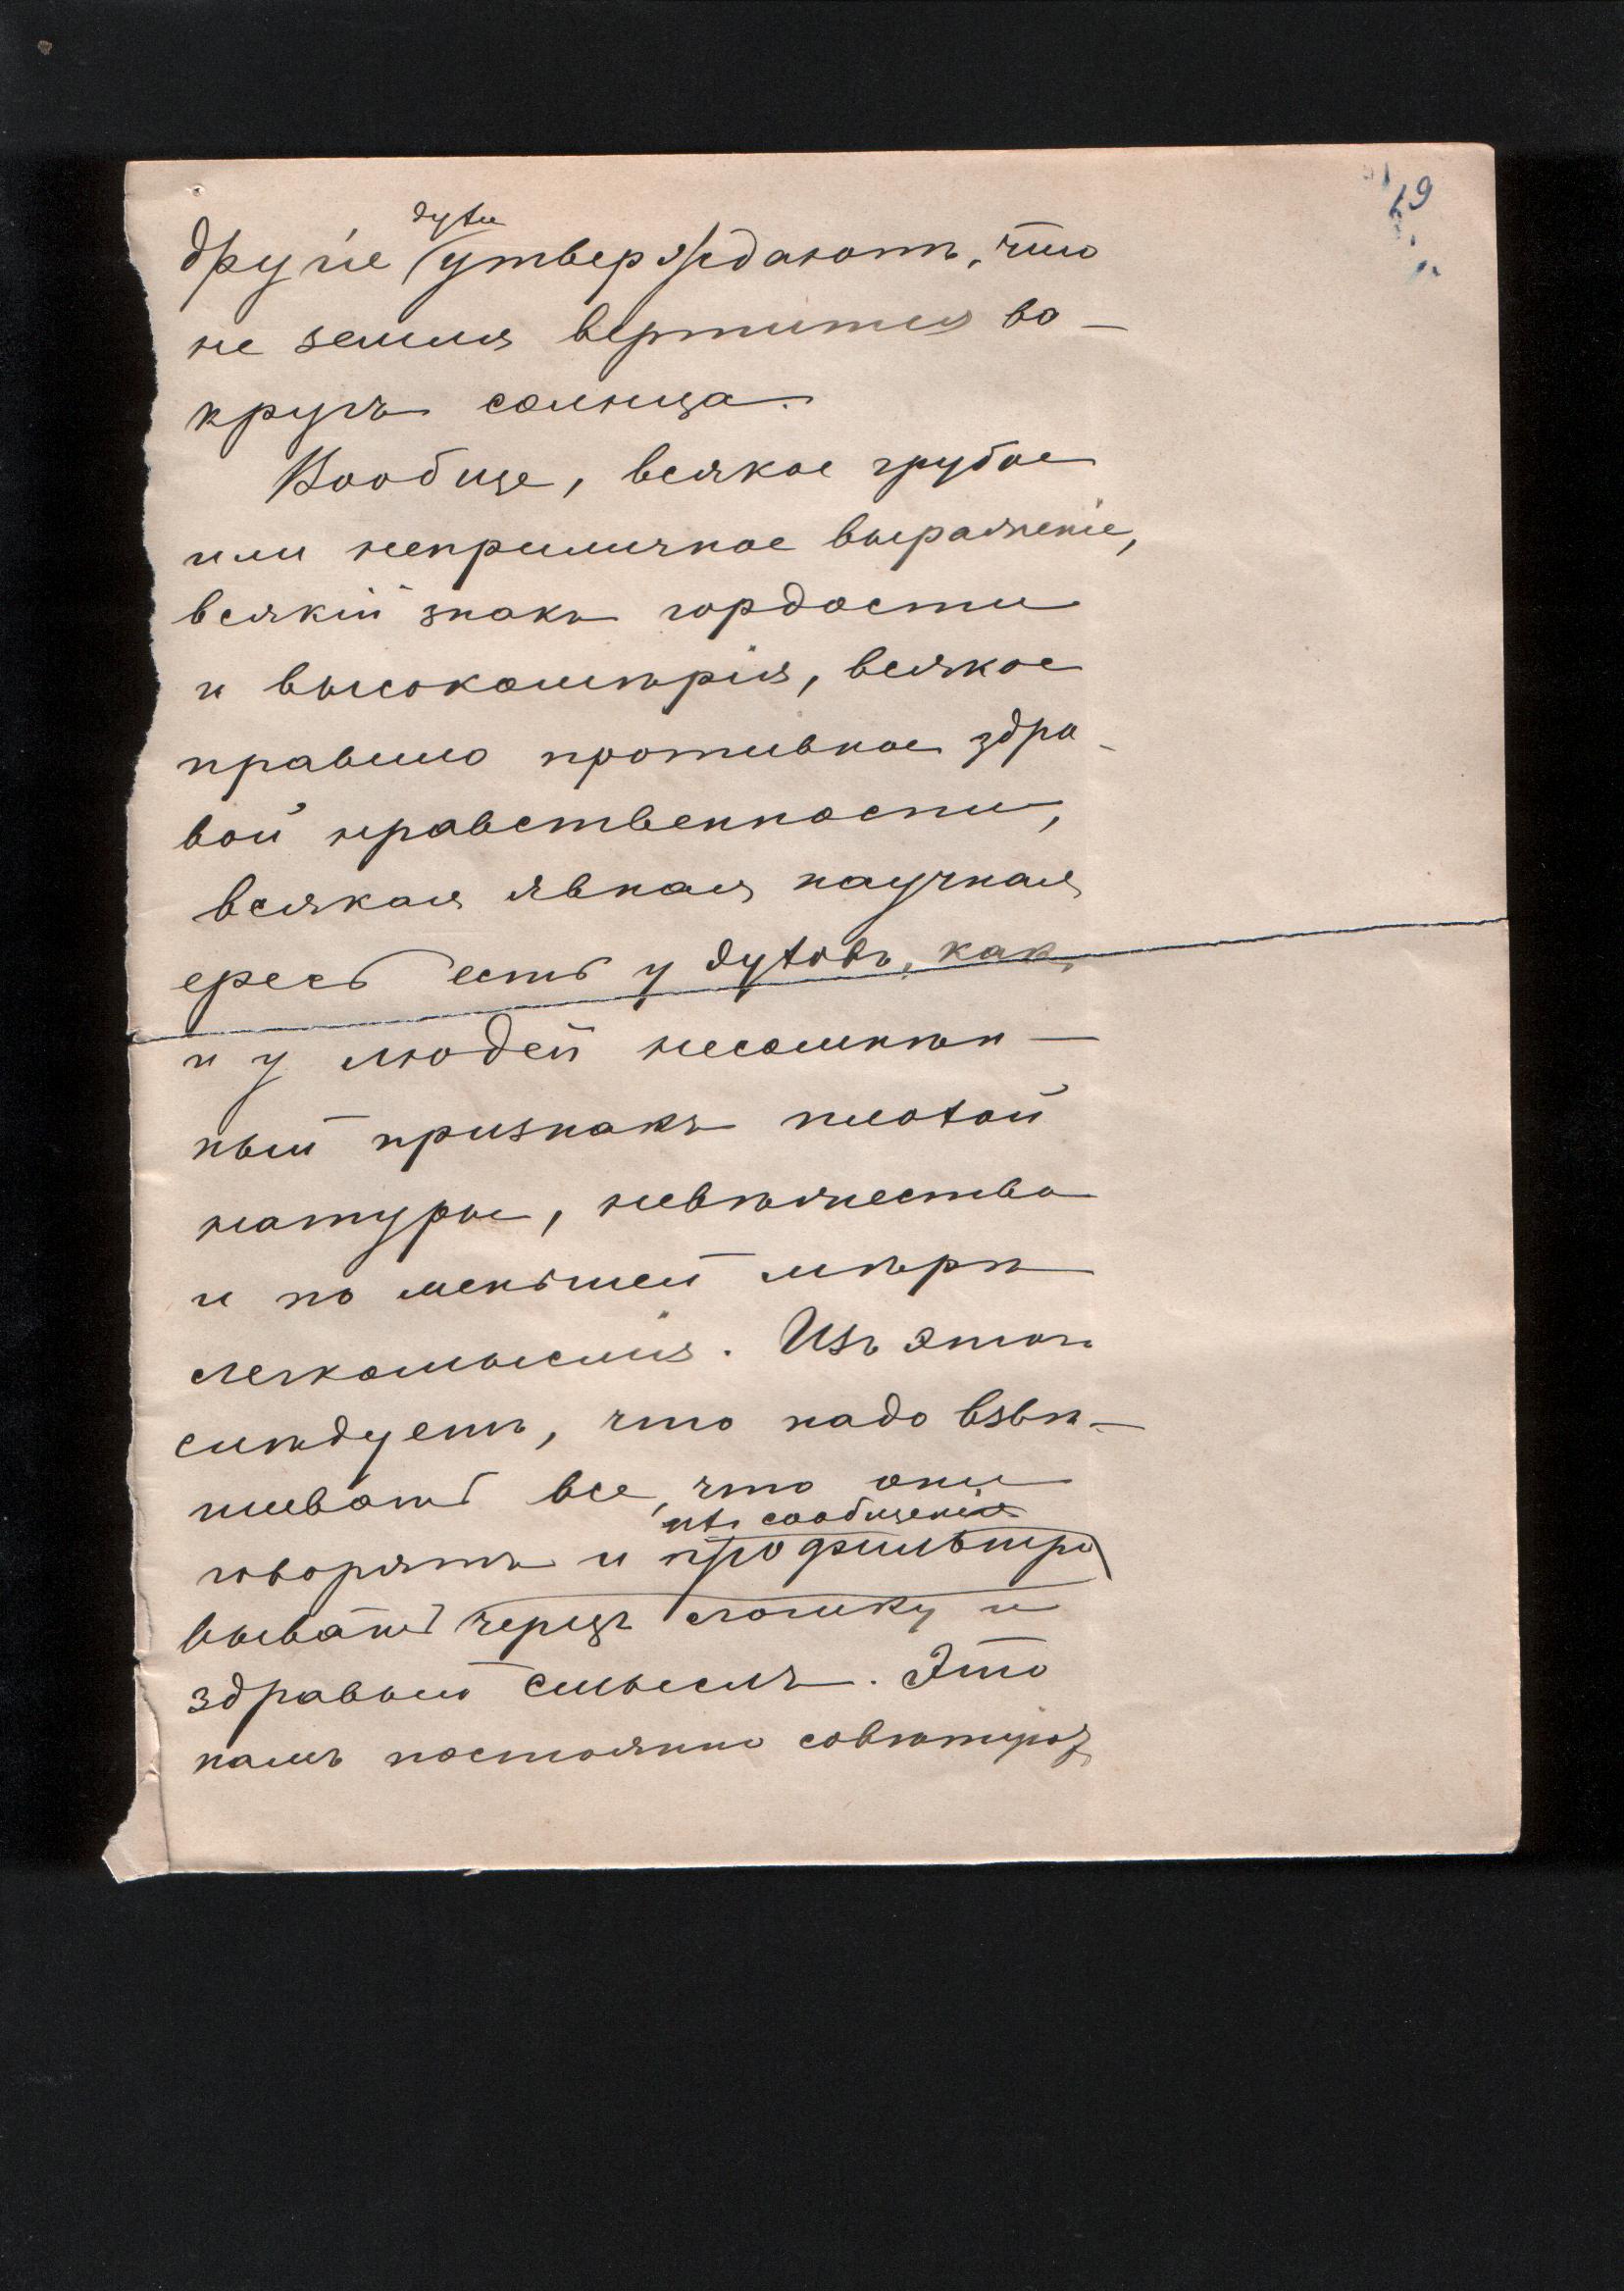 19
духи
другіе утверждаютъ, что
не земля вертится во-
кругъ солнца.
Вообще, всякое грубое
или неприличное выраженіе,
всякій знакъ гордости
и высокомѣрія, всякое
правило противное здра-
вой нравственности,
всякая явная научная
ересь есть у духовъ, какъ
и у людей несомнѣн-
ный признакъ плохой
натуры, невѣжества
и по меньшей мѣрѣ
легкомыслія. Изъ этого
слѣдуетъ, что надо взвѣ-
шивать все, что они
ихъ сообщенія
говорятъ и профильтро
вывать черезъ логику и
здравый смыслъ. Это
намъ постоянно